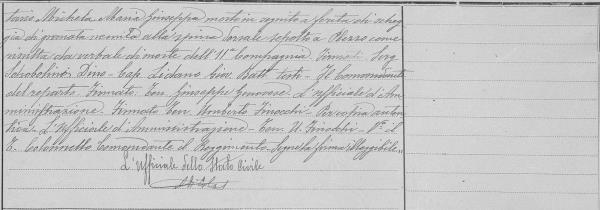 tasso Michela Maria Giuseppa morto in seguito a ferita di scheg
gia di granata riportata alla spina dorsale sepolto a Plezzo come
risulta da verbale di morte dell'11ª Compagnia. Firmati Serg
Dino - Cap. Lidano Giov. Batt. Teste - Il Comandante
del reparto Firmato Ten. Giuseppe Genovese. L'ufficiale d'Am
ministrazione - Firmato Ten. Umberto Finocchi - Per copia auten
tica - L'Ufficiale d'Amministrazione - Ten. U. Finocchi - Vº il
T. Colonnello Comandante il Reggimento. Segue la firma illeggibile.
L'Ufficiale dello Stato Civile